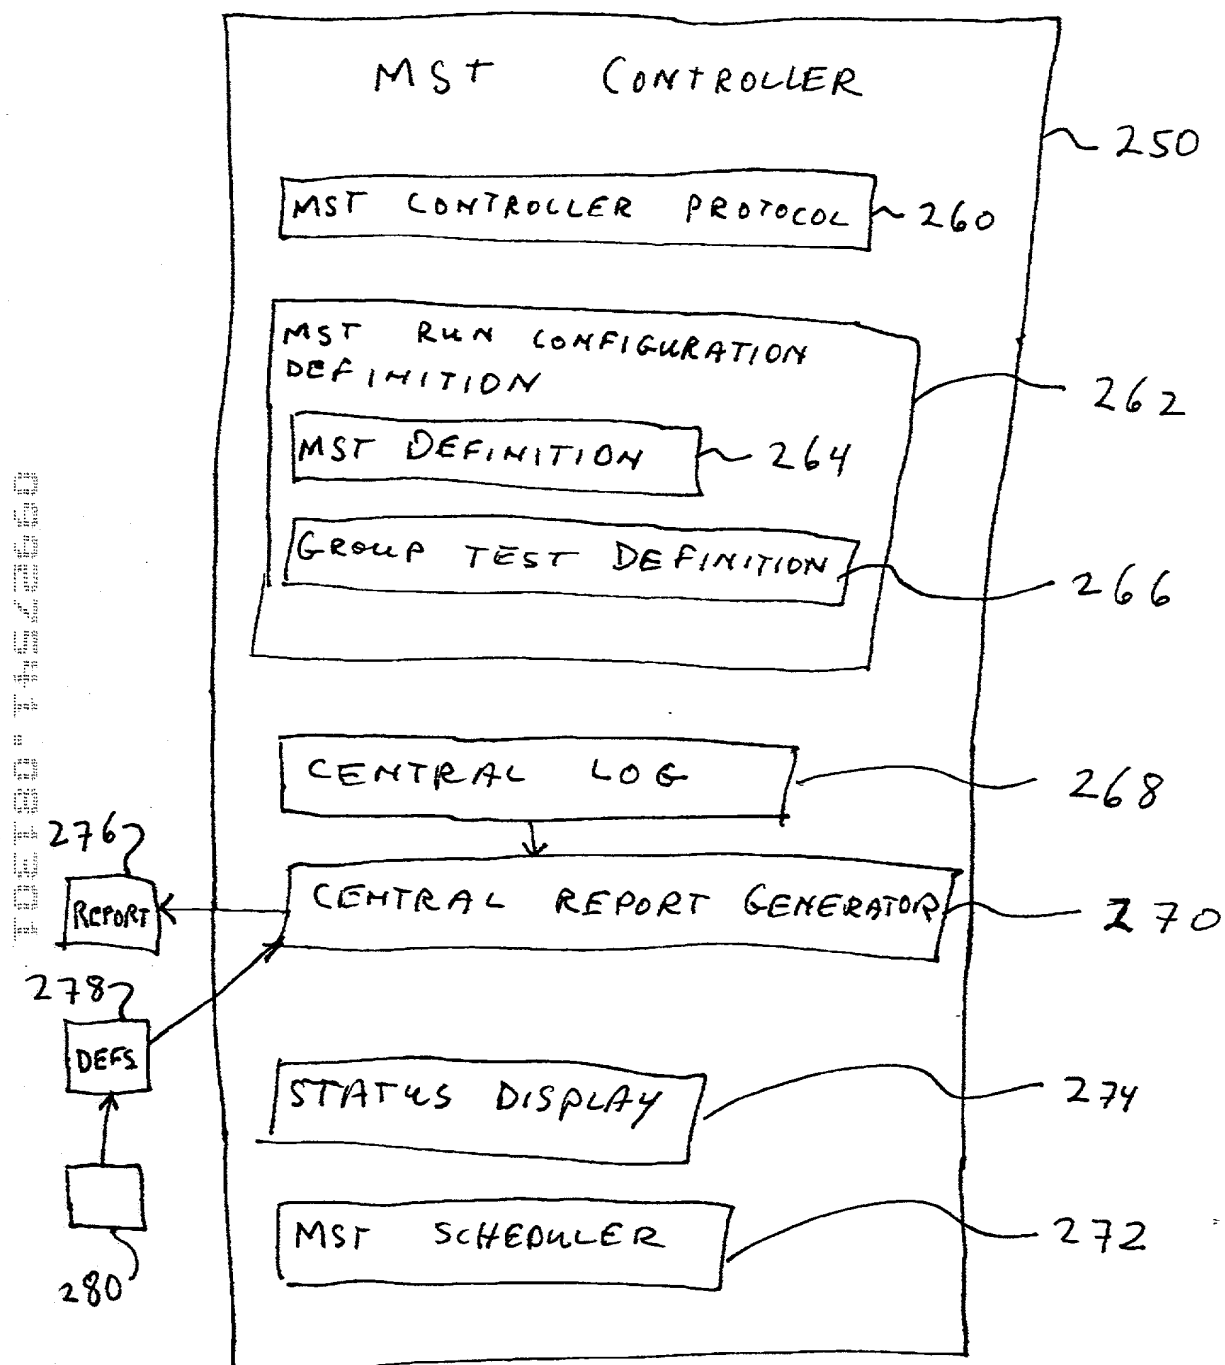 MST CONTROLLER
250
MST CONTROLLER PROTOCOL
260
MST RUN CONFIGURATION
DEFINITION
262
MST DEFINITION
264
GROUP TEST DEFINITION
266
CENTRAL LOG
268
276
REPORT
CENTRAL REPORT GENERATOR
270
278
DEFS
STATUS DISPLAY
274
MST SCHEDULER
272
280